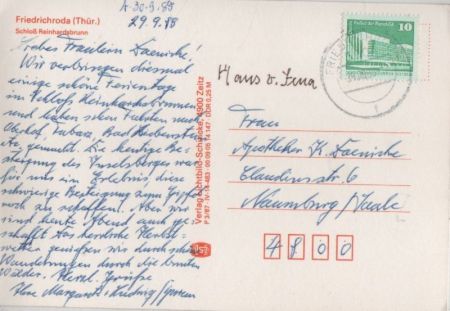 A-30.9.89
29.9.88
Friedrichroda (Thür.)
Schloß Reinhardsbrunn
Liebes Fräulein
Wir verbringen diesmal
einige schöne Ferientage
im Schloß Reinhardsbrunn
und haben schon Fahrten nach
Oberhof, Tabarz, Bad Liebenstein
etc gemacht. Die heutige Be-
steigung des Inselberges war
für uns ein Erlebnis, diese
schwierige Besteigung zum Gipfel
noch zu schaffen! Aber wir
sind heute Abend auch ge-
schafft. Das herrliche Herbst-
wetter genießen wir durch schöne
Wanderungen durch die bunten
Wälder. Herzl. Grüße
Ihre Margarete
Verlag Lichtbild-Schincke, 4900 Zeitz
10
Hans v. Jena
Frau
Apotheker K.
Claudiusstr. 6
Naumburg/Saale
4800